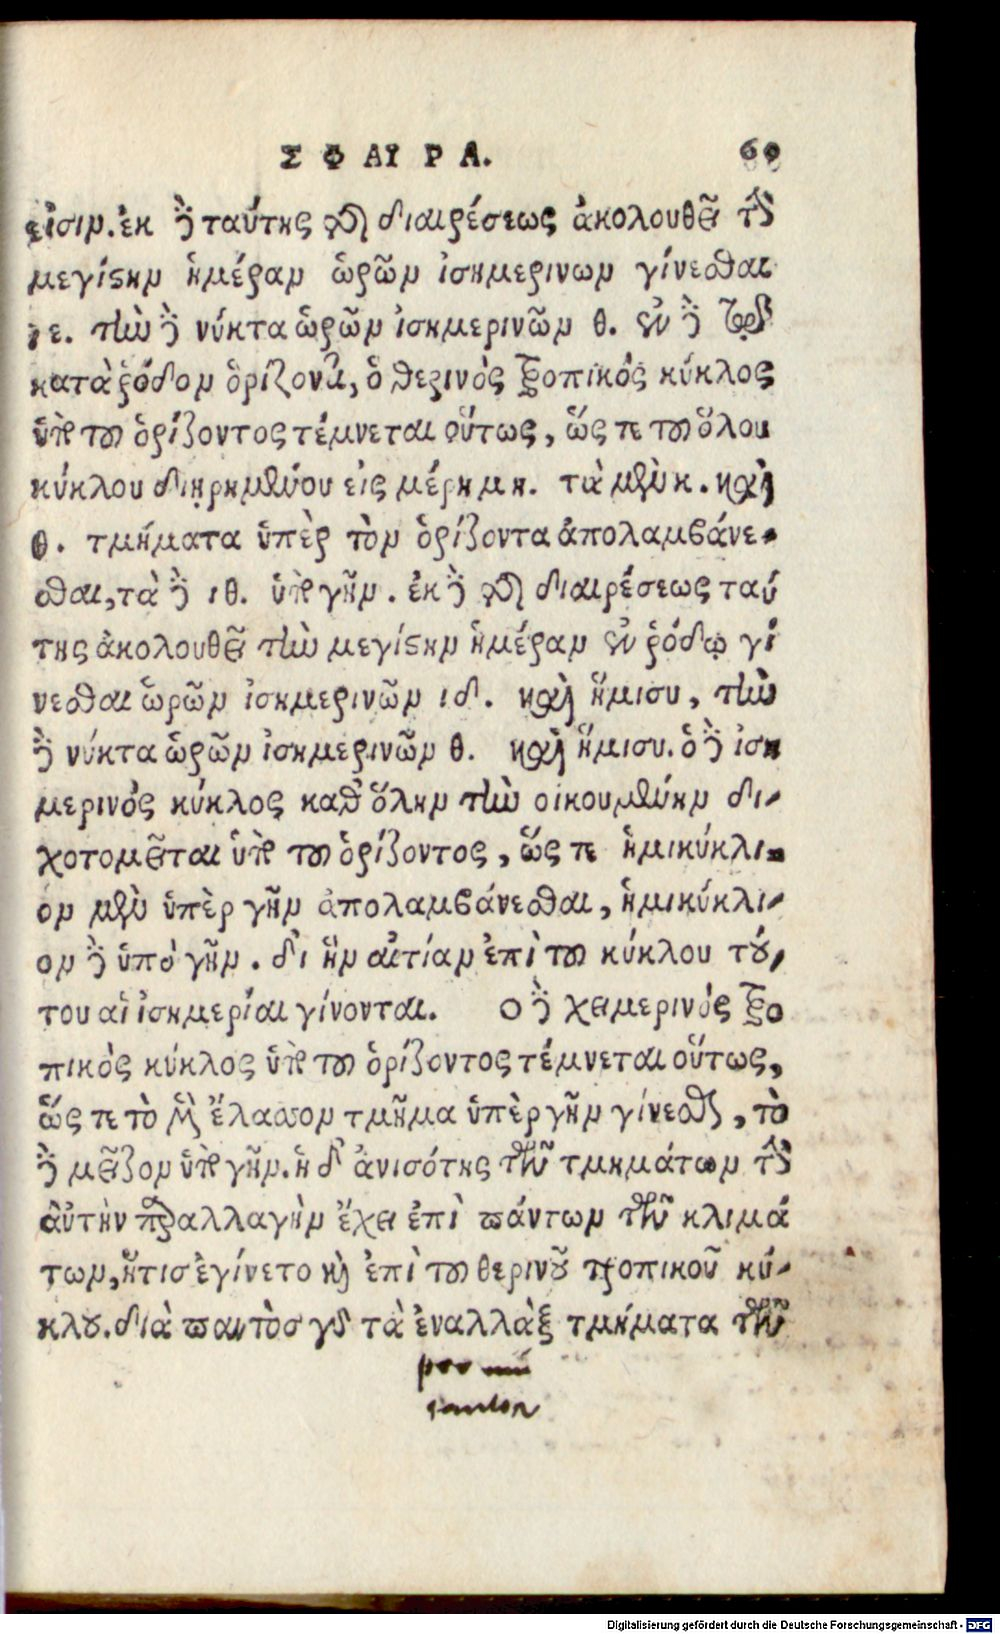 ΣΦΑΙΡΑ. 60
εἰσιν. ἐκ δὲ ταύτης τῆς διαιρέσεως ἀκολουθεῖ τὴν
μεγίστην ἡμέραν ὡρῶν ἰσημερινων γίνεσθαι
ιε. τὴν δὲ νύκτα ὡρῶν ἰσημερινῶν θ. ἐν δὲ τῷ
κατὰ ῥόδον ὁρίζοντι, ὁ θερινὸς τροπικὸς κύκλος
ὑπὸ τοῦ ὁρίζοντος τέμνεται οὕτως, ὥς τε τοῦ ὅλου
κύκλου διῃρημένου εἰς μέρη μη. τὰ μὲν κ. καὶ
θ. τμήματα ὑπὲρ τὸν ὁρίζοντα ἀπολαμβάνε-
σθαι, τὰ δὲ ιθ. ὑπὸ γῆν. ἐκ δὲ τῆς διαιρέσεως ταύ
της ἀκολουθεῖ τὴν μεγίστην ἡμέραν ἐν ῥόδῳ γί
νεσθαι ὡρῶν ἰσημερινῶν ιδ. καὶ ἥμισυ, τὴν
δὲ νύκτα ὡρῶν ἰσημερινῶν θ. καὶ ἥμισυ. ὁ δὲ ἰση
μερινὸς κύκλος καθ ὅλην τὴν οἰκουμένην δι-
χοτομεῖται ὑπὸ τοῦ ὁρίζοντος, ὥς τε ἡμικύκλι-
ον μὲν ὑπὲρ γῆν ἀπολαμβάνεσθαι, ἡμικύκλι-
ον δὲ ὑπὸ γῆν. δι ἣν αἰτίαν ἐπὶ τοῦ κύκλου τού-
του αἱ ἰσημερίαι γίνονται. Ο δὲ χειμερινὸς τρο
πικὸς κύκλος ὑπὸ τοῦ ὁρίζοντος τέμνεται οὕτως,
ὥς τε τὸ μὲν ἔλασσον τμῆμα ὑπὲρ γῆν γίνεσθαι, τὸ
δὲ μεῖζον ὑπὸ γῆν. ἡ δ ἀνισότης τῶν τμημάτων τὴν
αὐτὴν παραλλαγὴν ἔχει ἐπὶ πάντων τῶν κλιμά
των, ἥτισ ἐγίνετο καὶ ἐπὶ τοῦ θερινοῦ τροπικοῦ κύ-
κλου. διὰ παντὸσ γὰρ τὰ ἐναλλὰξ τμήματα τῶν
Digitalisierung gefördert durch die Deutsche Forschungsgemeinschaft - DFG